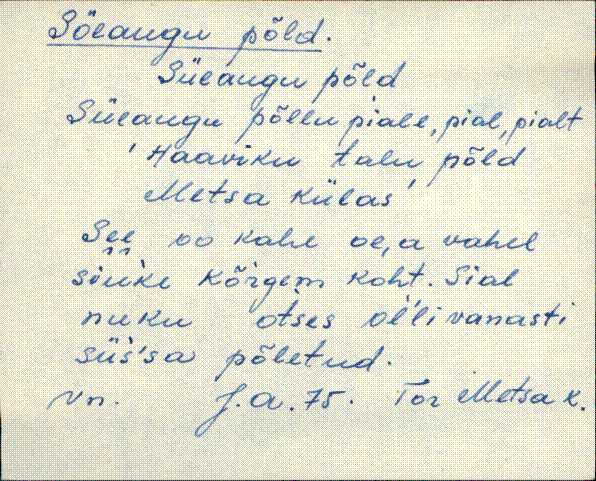 Söeaugu põld.
Süeaugu põld
Süeaugu põllu piale, pial, pialt
'Haaviku talu põld
Metsa külas'
See oo kahe oe,a vahel
siuke kõrgem koht. Sial
nuku otses olli vanasti
süs'sa põletud.
Vn. J.A. 75. Tor Metsa k.